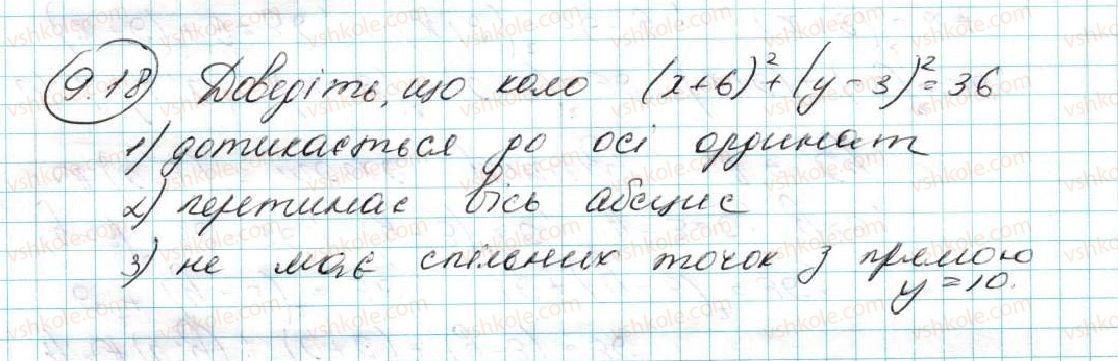 9.18 Доведіть, що коло (x+6)²+(y-3)²=36
1) дотикається до осі ординат
2) перетинає вісь абсцис
3) не має спільних точок з прямою
y=10.